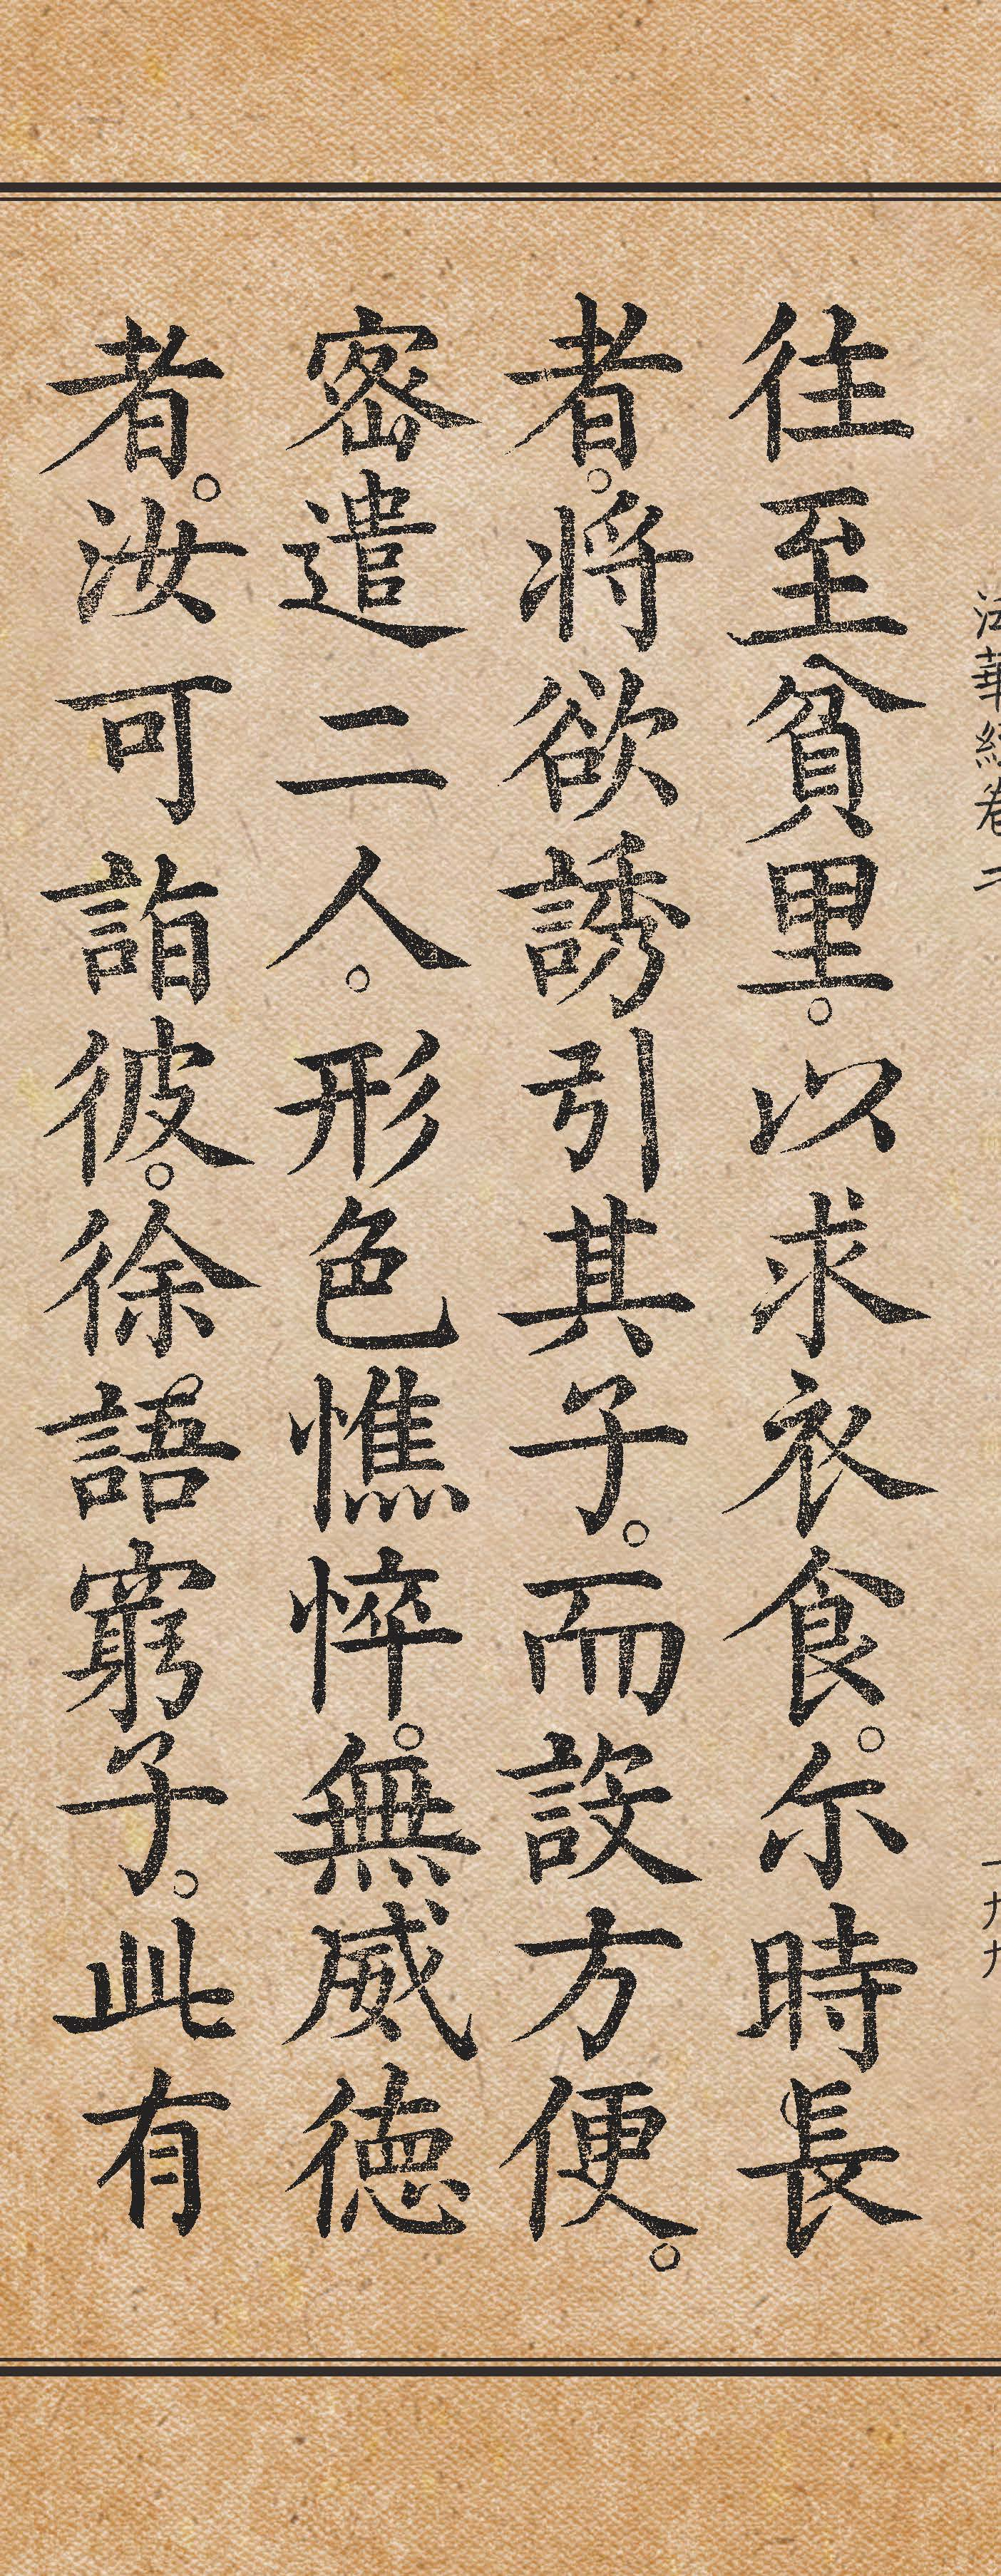 往至貧里。以求衣食。尒時長
者。将欲誘引其子。而設方便。
密遣二人。形色憔悴。無威徳
者。汝可詣彼。徐語窮子。此有
法華経卷二
一九九